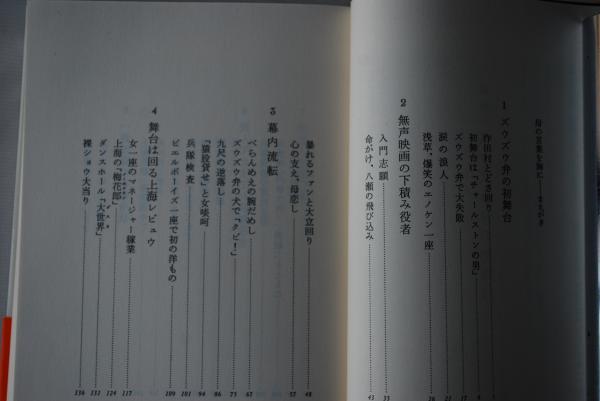 母の言葉を胸に――まえがき
1 ズウズウ弁の初舞台
作田村とどさ回り
初舞台は「チャールストンの男」
ズウズウ弁で大失敗
涙の浪人 22
浅草、爆笑のエノケン一座
2 無声映画の下積み役者
入門志願 33
命がけ、八瀬の飛び込み 43
暴れるファンと大立回り 48
心の支え、母恋し 57
3 幕内流転
べらんめえの腕だめし 67
ズウズウ弁の犬で「クビ！」 75
九尺の逆落し 86
「猿股貸せ」と女啖呵 94
兵隊検査 101
ピエルボーイズ一座で初の洋もの 109
4 舞台は回る上海レビュウ
女一座のマネージャー稼業 117
上海の「梅花郎」 124
ダンスホール「大世界」 131
裸ショウ大当り 136